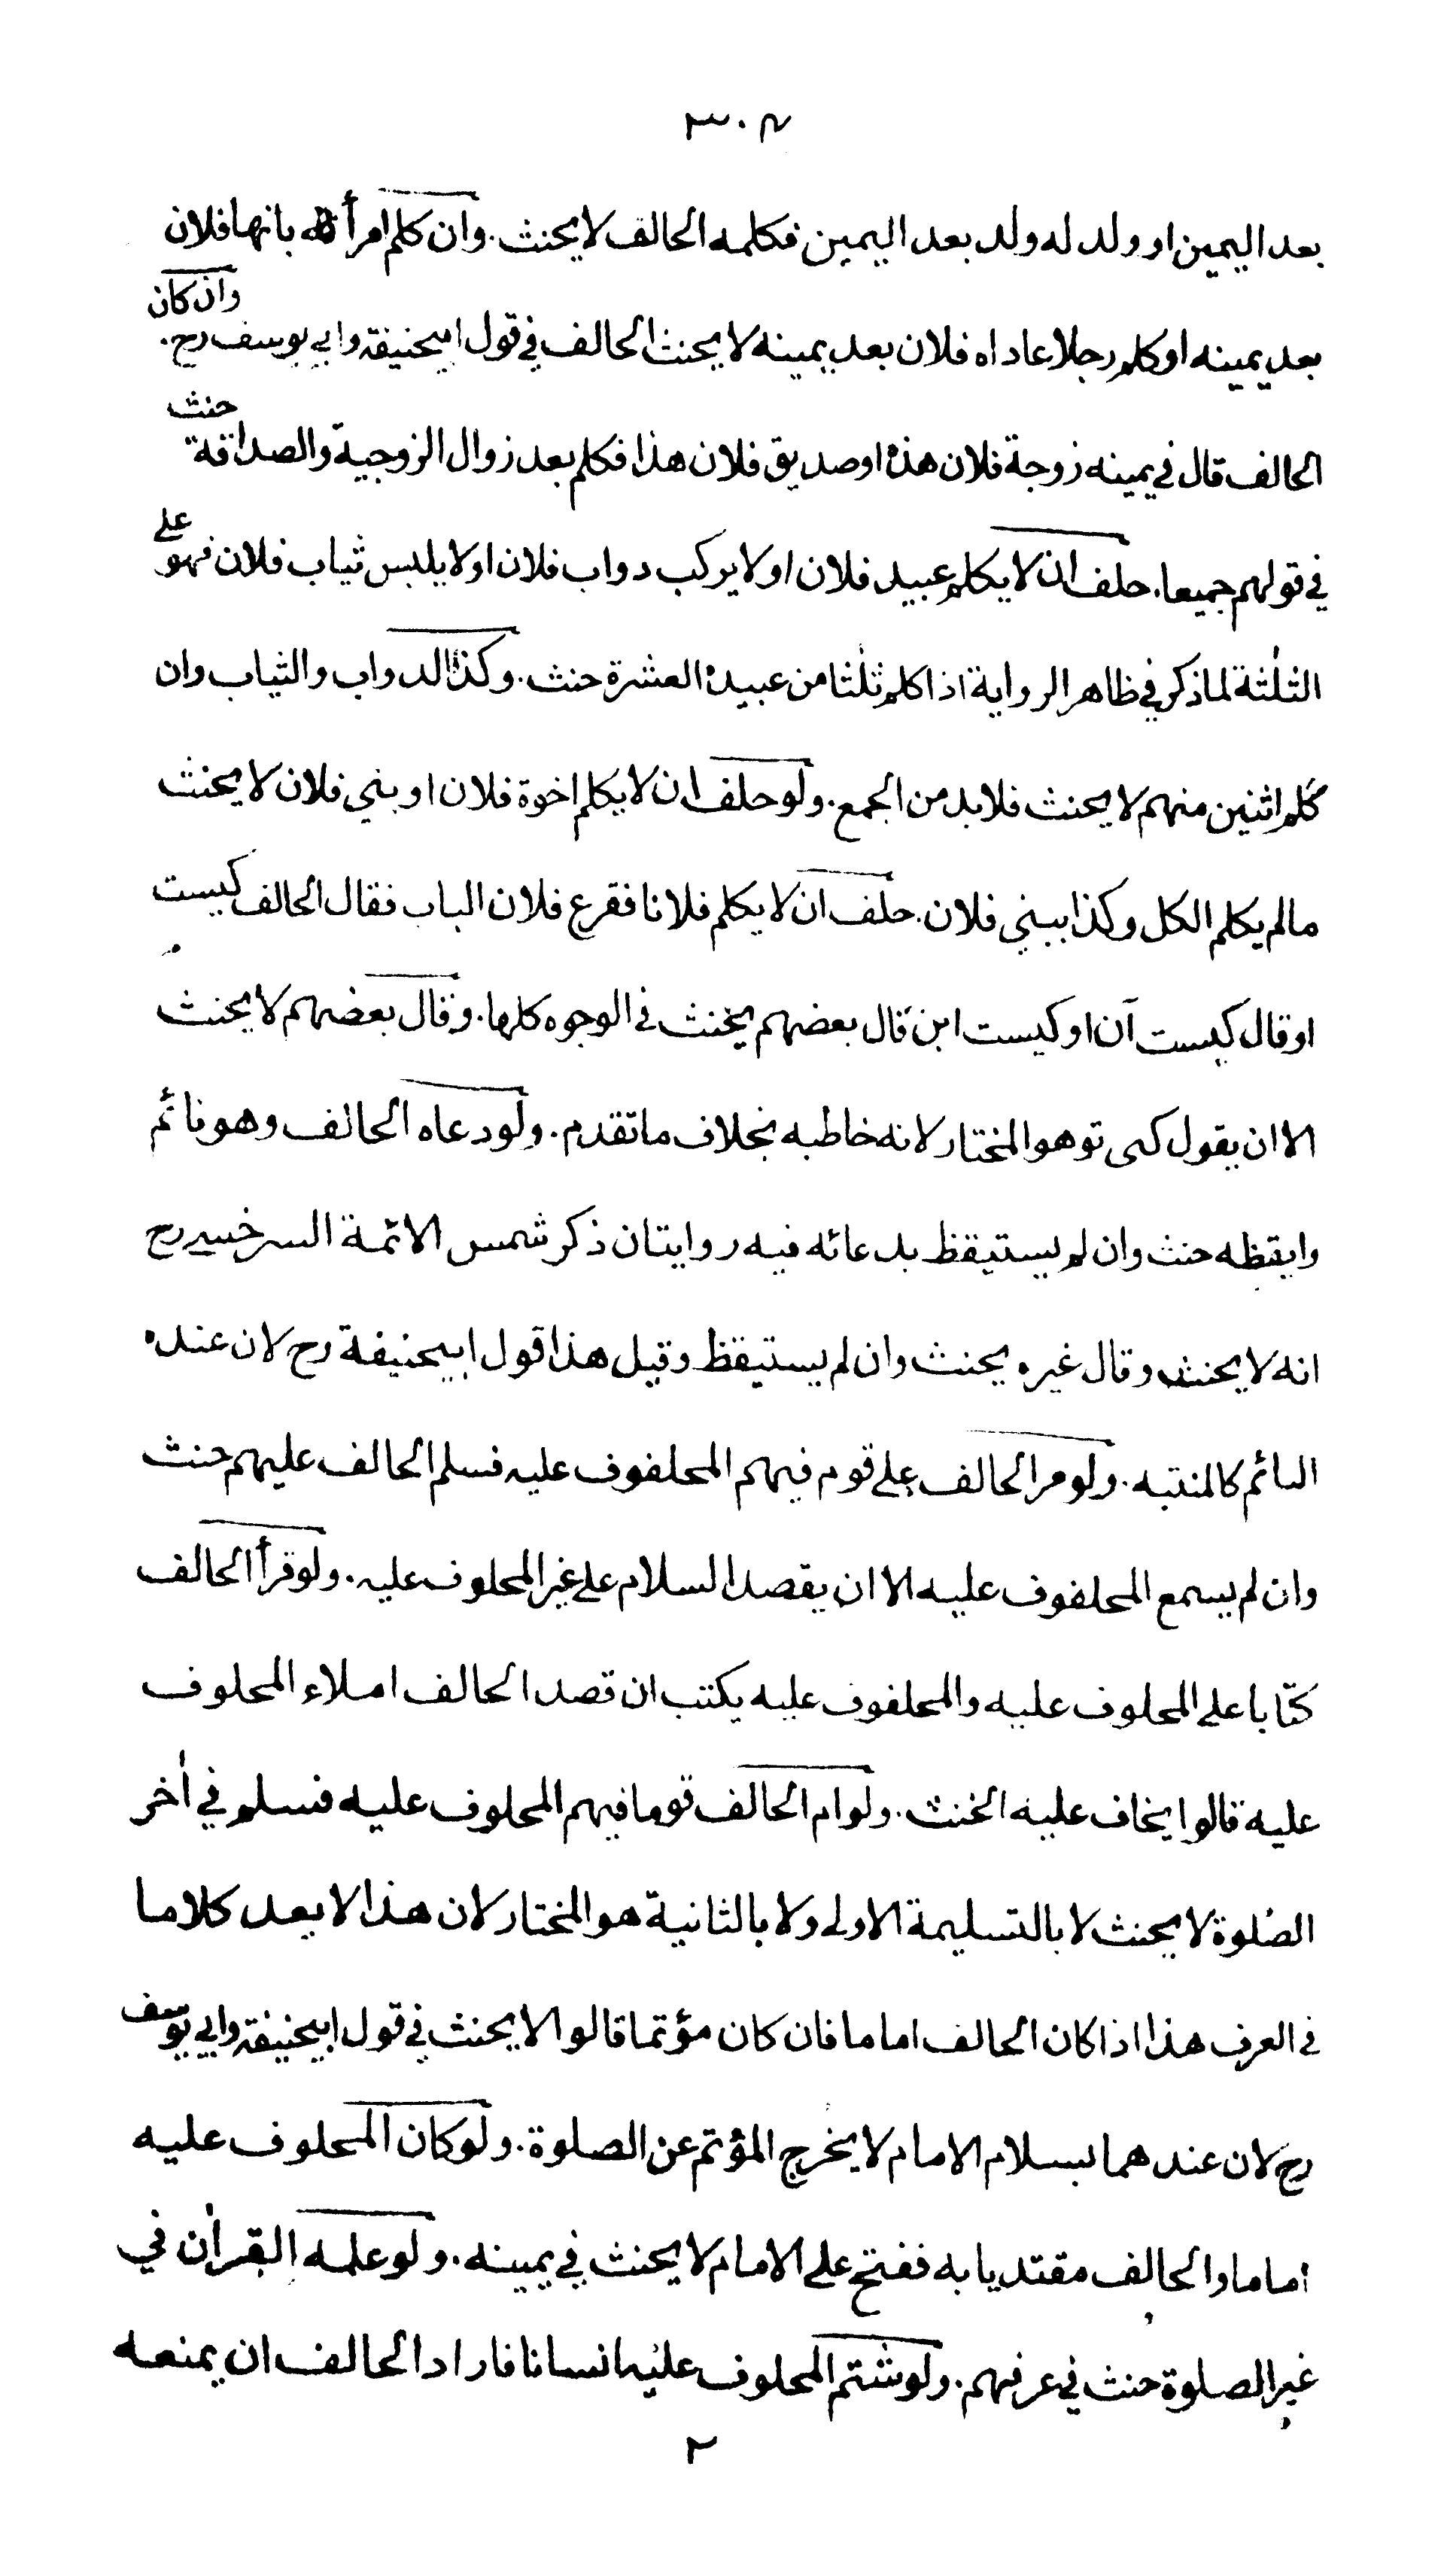 ٣٠٨
بعد اليمين او ولد له ولد بعد اليمين فكلمه الحالف لا يحنث. وان كلم امرأة بانها فلان
بعد يمينه او كلم رجلا عاداه فلان بعد يمينه لا يحنث الحالف في قول ابيحنيفة وابي يوسف رح. وان كان
الحالف قال في يمينه زوجة فلان هذه او صديق فلان هذا فكلم بعد زوال الزوجية والصداقة حنث
في قولهم جميعا. حلف ان لا يكلم عبيد فلان او لا يركب دواب فلان او لا يلبس ثياب فلان فهو على
الثلٰثة لما ذكر في ظاهر الرواية اذا كلم ثلٰثا من عبيده العشرة حنث. وكذا الدواب والثياب وان
كلم اثنين منهم لا يحنث فلا بد من الجمع. ولو حلف ان لا يكلم اخوة فلان او بني فلان لا يحنث
مالم يكلم الكل وكذا ببني فلان. حلف ان لا يكلم فلانا فقرع فلان الباب فقال الحالف كيست
او قال كيست آن او كيست اين قال بعضهم يحنث في الوجوه كلها. وقال بعضهم لا يحنث
الا ان يقول كى تو هو المختار لانه خاطبه بخلاف ما تقدم. ولو دعاه الحالف وهو نائم
وايقظه حنث وان لم يستيقظ بدعائه فيه روايتان ذكر شمس الائمة السرخسي رح
انه لا يحنث وقال غيره يحنث وان لم يستيقظ وقيل هذا قول ابيحنيفة رح لان عنده
النائم كالمنتبه. ولو مر الحالف على قوم فيهم المحلفوف عليه فسلم الحالف عليهم حنث
وان لم يسمع المحلفوف عليه الا ان يقصد السلام على غير المحلوف عليه. ولو قرأ الحالف
كتابا على المحلوف عليه والمحلفوف عليه يكتب ان قصد الحالف املاء المحلوف
عليه قالوا يخاف عليه الحنث. ولو ام الحالف قوما فيهم المحلوف عليه فسلم في اٰخر
الصلٰوة لا يحنث لا بالتسليمة الاولى ولا بالثانية هو المختار لان هذا لا يعد كلاما
في العرف هذا اذا كان الحالف اماما فان كان مؤتما قالوا لا يحنث في قول ابيحنيفة وابي يوسف
رح لان عندهما بسلام الامام لا يخرج المؤتم عن الصلوة. ولو كان المحلوف عليه
اماما والحالف مقتديا به ففتح على الامام لا يحنث في يمينه. ولو علمه القراٰن في
غير الصلوة حنث في عرفهم. ولو شتم المحلوف عليه انسانا فاراد الحالف ان يمنعه
٢